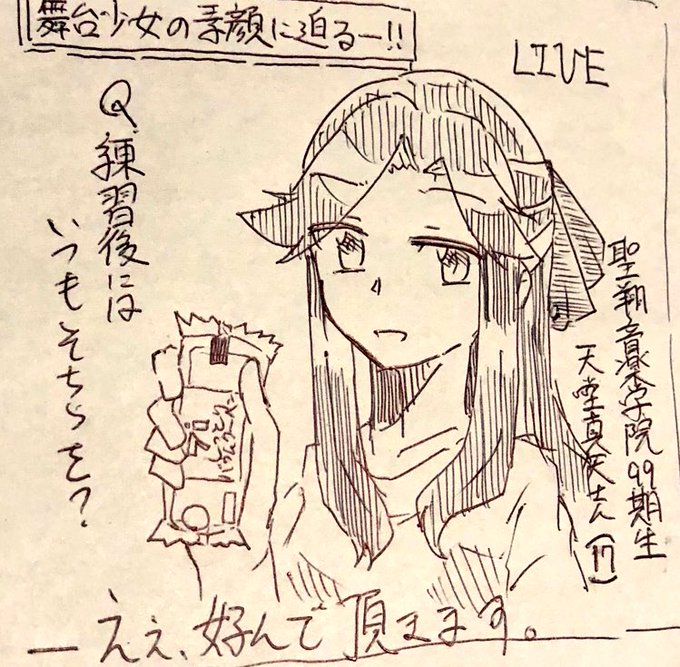 舞台少女の素顔に迫るー!!
LIVE
Q.練習後には
いつもそちらを?
聖翔音楽学院99期生
天堂真矢さん(17)
―ええ、好んで頂きます。―